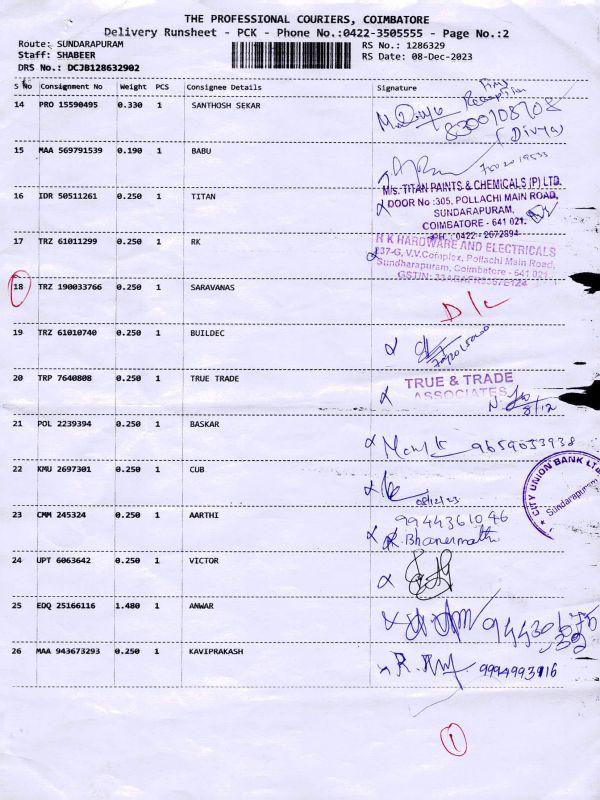 THE PROFESSIONAL COURIERS, COIMBATORE
Delivery Runsheet - PCK - Phone No.:0422-3505555 - Page No.:2
Route: SUNDARAPURAM RS No.: 1286329
Staff: SHABEER RS Date: 08-Dec-2023
DRS No.: DCJB128632902
S No Consignment No Weight PCS Consignee Details Signature
14 PRO 15590495 0.330 1 SANTHOSH SEKAR
8300108708
(Divya)
15 MAA 569791539 0.190 1 BABU
16 IDR 50511261 0.250 1 TITAN
M/s. TITAN PAINTS & CHEMICALS (P) LTD.
DOOR No :305, POLLACHI MAIN ROAD,
SUNDARAPURAM,
COIMBATORE - 641 021.
PH : 0422 - 2672894
17 TRZ 61011299 0.250 1 RK
R K HARDWARE AND ELECTRICALS
237-G, V.V.Complex, Pollachi Main Road,
Sundharapuram, Coimbatore - 641 021
18 TRZ 190033766 0.250 1 SARAVANAS
D/L
19 TRZ 61010740 0.250 1 BUILDEC
20 TRP 7640808 0.250 1 TRUE TRADE
TRUE & TRADE
ASSOCIATES
8/12
21 POL 2239394 0.250 1 BASKAR
9659033938
22 KMU 2697301 0.250 1 CUB
08/12/23
CITY UNION BANK LTD
Sundarapuram
23 CMM 245324 0.250 1 AARTHI
9944361046
24 UPT 6063642 0.250 1 VICTOR
25 EDQ 25166116 1.480 1 ANWAR
26 MAA 943673293 0.250 1 KAVIPRAKASH
9994993916
1